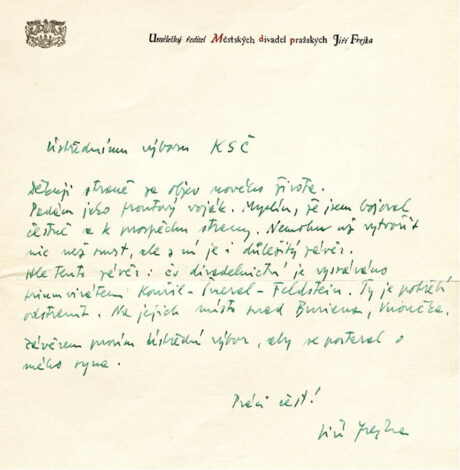 Umělecký ředitel Městských divadel pražských Jiří Frejka
Ústřednímu výboru KSČ
Děkuji straně za objev nového života.
Padám jako frontový voják. Myslím, že jsem bojoval
čestně a k prospěchu strany. Nemohu už vytvořit
nic než smrt, ale z ní je i důležitý závěr.
Ale tento závěr: čs divadelnictví je vysáváno
triumvirátem Konřil - Pucral - Feldstein. Ty je potřebí
odstranit. Na jejich místo snad Buriana,
Závěrem prosím Ústřední výbor, aby se postaral o
mého syna.
Práci čest!
Jiří Frejka